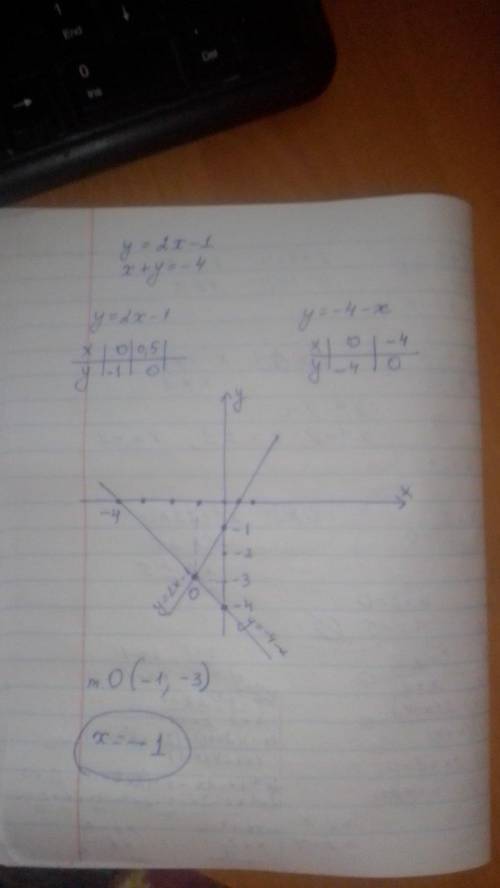 1
End
↓
0
Ins
.
Del
→
y = 2x - 1
x + y = -4
y = 2x - 1
y = -4 - x
x | 0 | 0,5 |
y | -1 | 0 |
x | 0 | -4
y | -4 | 0
y
x
-4
-1
-2
-3
-4
O
y=2x-
y=-4-x
т. O (-1, -3)
x = -1